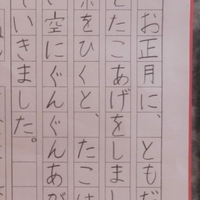 お正月に、ともだ
とたこあげをしまし
をひくと、たこ
い空にぐんぐんあが
いきました。